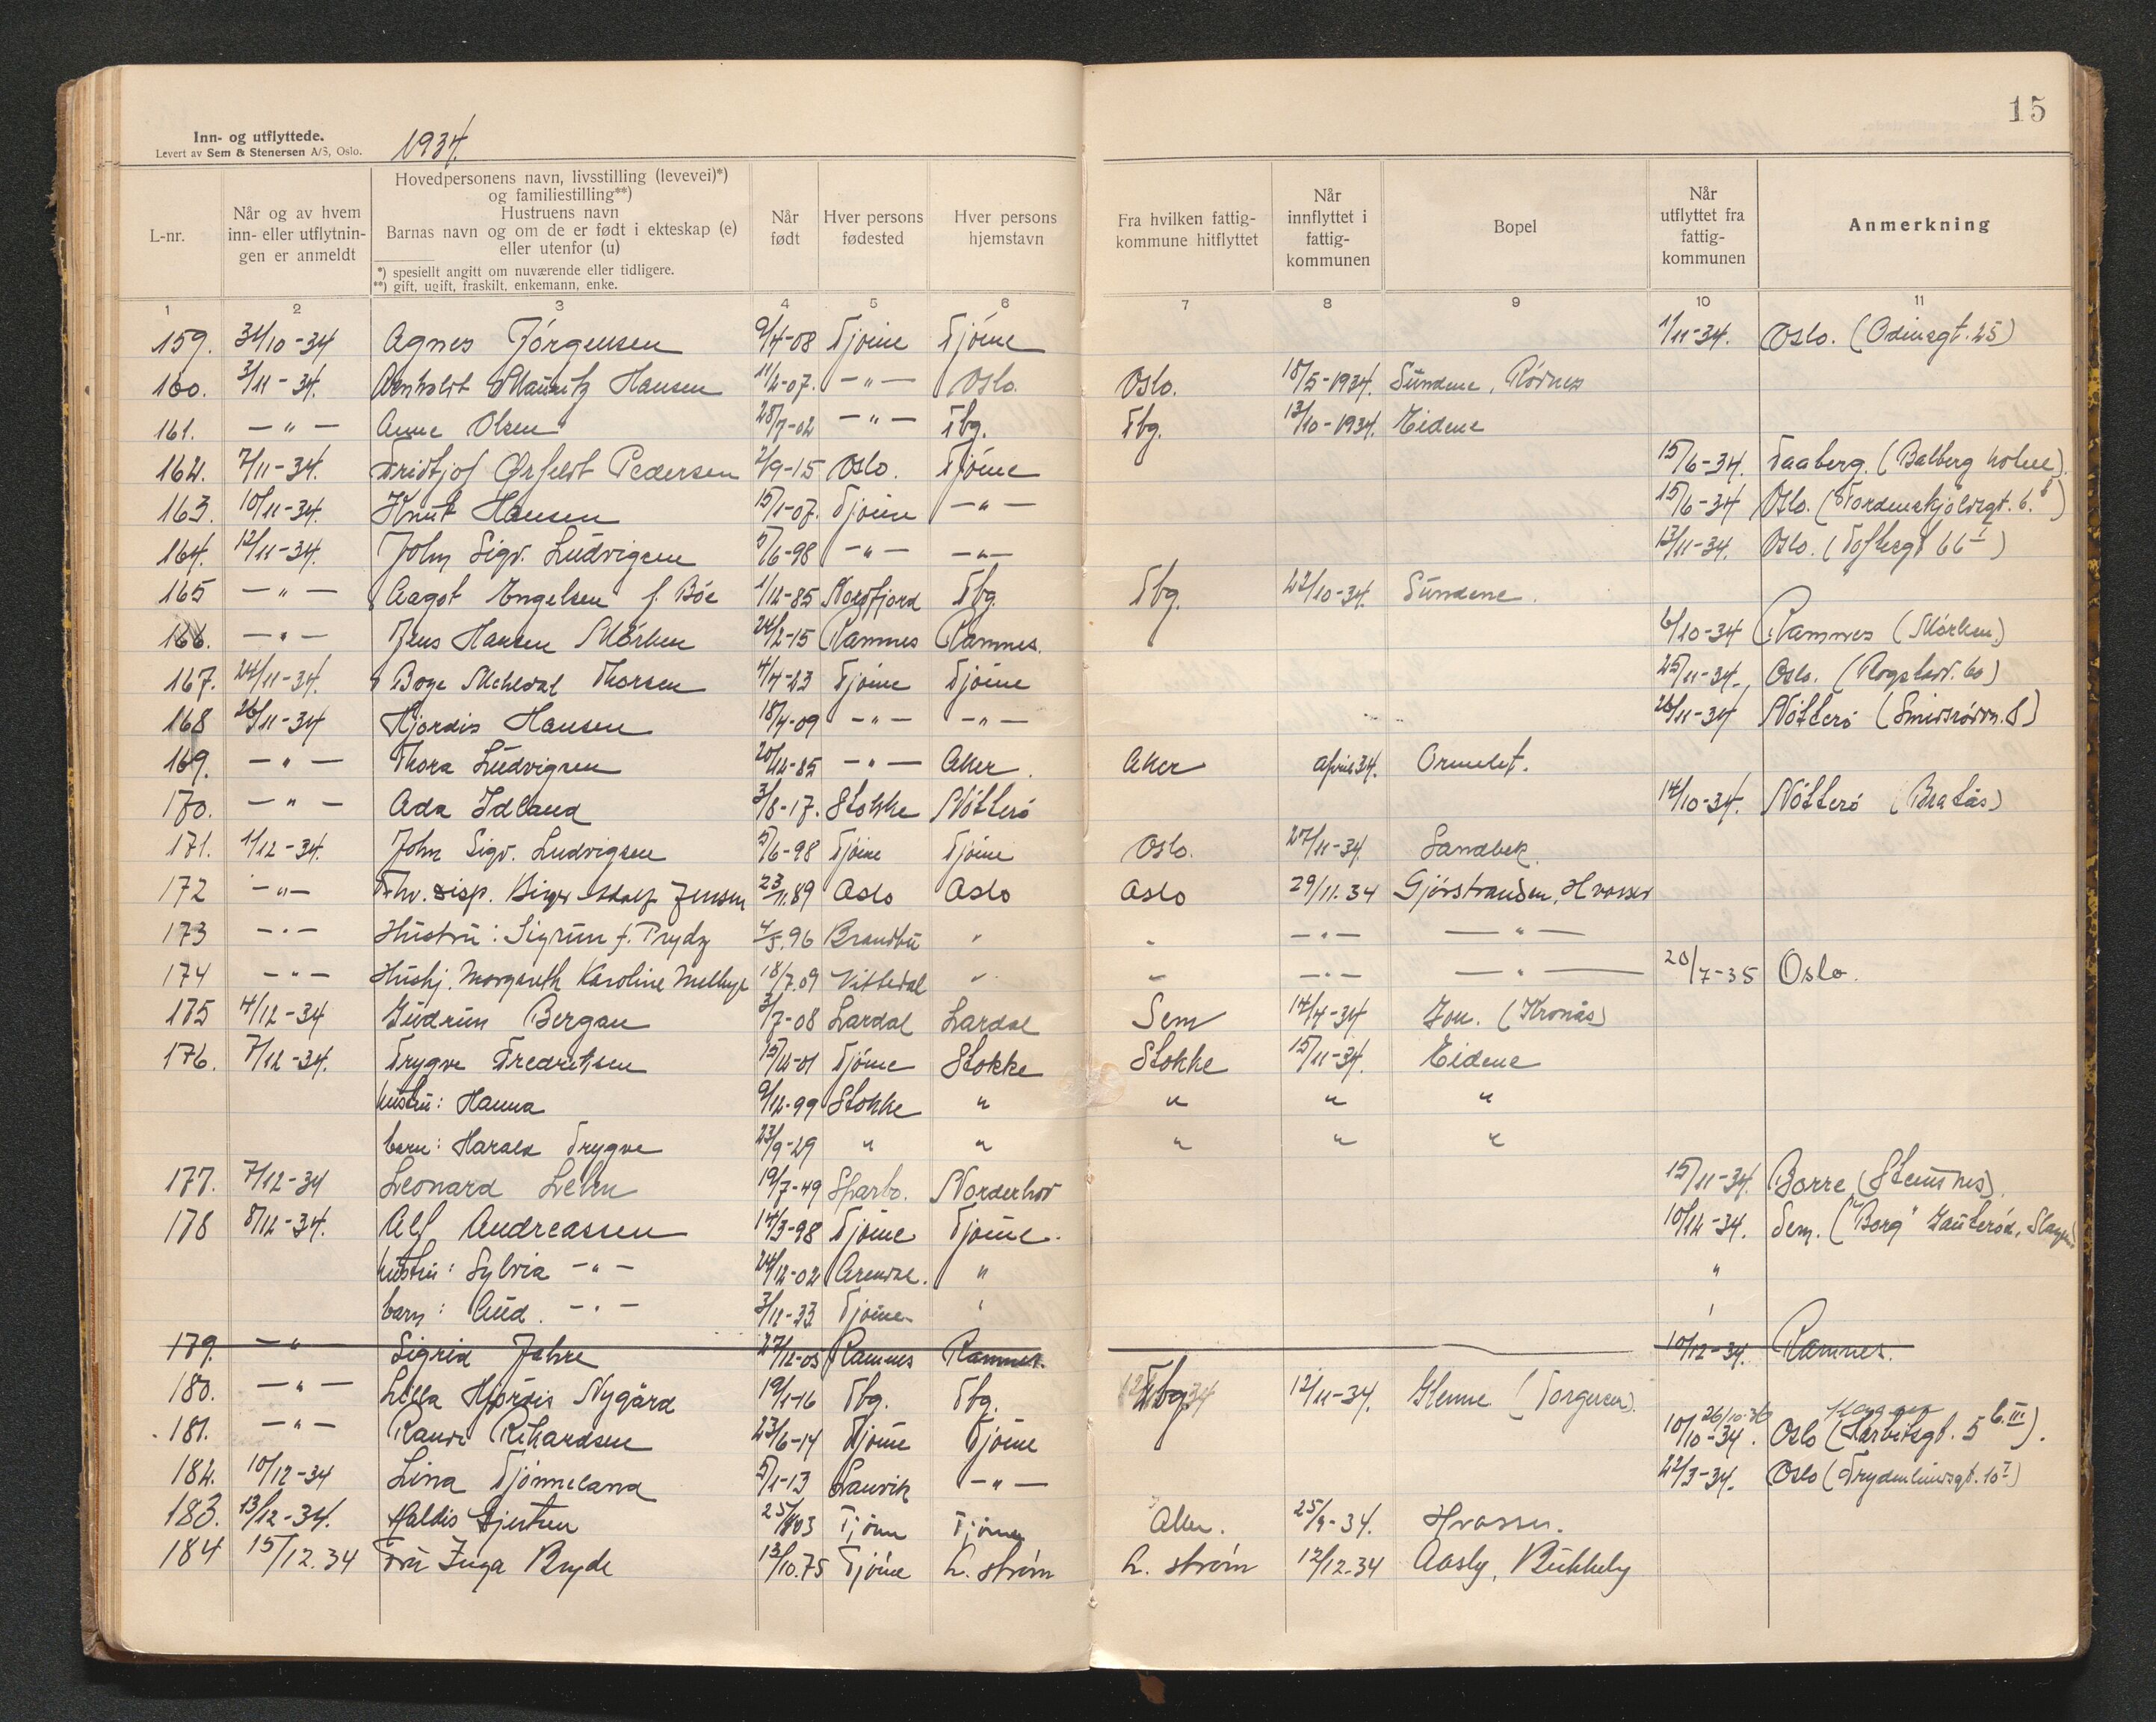 15
Inn- og utflyttede.
Levert av Sem & Stenersen A/S, Oslo.
1934.
L-nr.
Når og av hvem inn- eller utflytnin- gen er anmeldt
Hovedpersonens navn, livsstilling (levevei)*) og familiestilling**) Hustruens navn Barnas navn og om de er født i ekteskap (e) eller utenfor (u)
*) spesiellt angitt om nuværende eller tidligere.
**) gift, ugift, fraskilt, enkemann, enke.
Når født
Hver persons fødested
Hver persons hjemstavn
Fra hvilken fattig- kommune hitflyttet
Når innflyttet i fattig- kommunen
Bopel
Når utflyttet fra fattig- kommunen
Anmerkning
1 2 3 4 5 6 7 8 9 10 11
159. 31/10-34 Agnes Jørgensen 9/4-08 Tjøme Tjøme 1/11-34. Oslo. (Odinsgt. 25)
160. 3/11-34. Arnholdt Mauritz Hansen 11/2-07. -"- Oslo. Oslo. 18/5-1934. Sundene, Rødnes
161. -"- Anne Olsen 28/7-02 -"- Tbg. Tbg. 13/10-1934. Eidene
162. 7/11-34. Fridtjof Ørfeldt Pedersen 2/9-15 Oslo. Tjøme 15/6-34. Faaberg. (Balberg
163. 10/11-34. Knut Hansen 15/1-07. Tjøme -"- 15/6-34 Oslo. (Nordenskjoldsgt. 6.
164. 12/11-34. John Sigv. Ludvigsen 5/6-98 -"- -"- 13/11-34. Oslo. (Toftesgt 66 I)
165 -"- Aagot Engelsen f. Bøe 1/12-85 Tbg. Tbg. 22/10-34. Sundene.
166. -"- Jens Hansen Mørken 24/2-15 Ramnes Ramnes. 6/10-34 Ramnes (Mørken.)
167. 24/11-34. Thorsen 4/4-23 Tjøme Tjøme 25/11-34. Oslo.
168 26/11-34 Hjørdis Hansen 18/4-09 -"- -"- 26/11-34 Nøtterø (Smidsrødvn. 8)
169. -"- Thora Ludvigsen 20/12-85 -"- Aker. Aker april 34. Ormelet.
170. -"- Ada Idland 3/8-17. Stokke Nøtterø 14/10-34. Nøtterø (Bratås)
171. 1/12-34. John Sigv. Ludvigsen 5/6-98 Tjøme Tjøme Oslo. 27/11-34. Sandbek.
172 -"- Fhv. disp. Birger Adolf Jensen 23/11.89 Oslo Oslo Oslo 29/11.34 Gjørstranden, Hvasser
173 -"- Hustru: Sigrun f. Prydz 4/5.96 Brandbu " " -"- -"-
174 -"- Hushj. Margareth Karoline Melbye 18/7.09 Nittedal " " -"- -"- 20/7-35 Oslo.
175 4/12-34 Gudrun Bergan 3/7-08 Lardal Lardal Sem 14/4-34 (Kronås)
176. 7/12-34. Trygve Fredriksen 15/12-01 Tjøme Stokke Stokke 15/11-34. Eidene
hustru: Hanna 9/12-99 Stokke " " " "
barn: Harald Trygve 23/9-29 " " " " "
177. 7/12-34 Leonard Lehn 19/7-49 Sparbo. Norderhov 15/11-34. Borre (Steinsnes).
178 8/12-34. Alf Andreassen 14/3-98 Tjøme Tjøme. 10/12-34. Sem. ("Borg" Jauterød, Slagen)
hustru: Sylvia -"- 24/12-02 Arendal. " "
barn: Aud. -"- 3/12-33 Tjøme " "
179. -"- Sigrid Jahre 27/12-05 Ramnes Ramnes. 10/12-34. Ramnes.
180. -"- Lilla Hjørdis Nygård 19/1-16 Tbg. Tbg. Tbg 12/11-34. Glenne (Torgersen).
181. -"- Randi Rikardsen 23/6-14 Tjøme Tjøme 10/10-34. 26/10-36 Oslo 5 b. III).
182. 10/12-34 Lina Tjømeland 5/1-13 Larvik -"- 22/3-34. Oslo (Frydenlundsgt. 10 I)
183. 13/12-34. Haldis Tjøme Tjøme 25/9-34. Hvasser.
184 15/12.34 Fru Inga Bryde 13/10.75 Tjøme L. strøm L. strøm 12/12.34 Aasly, Bukkely